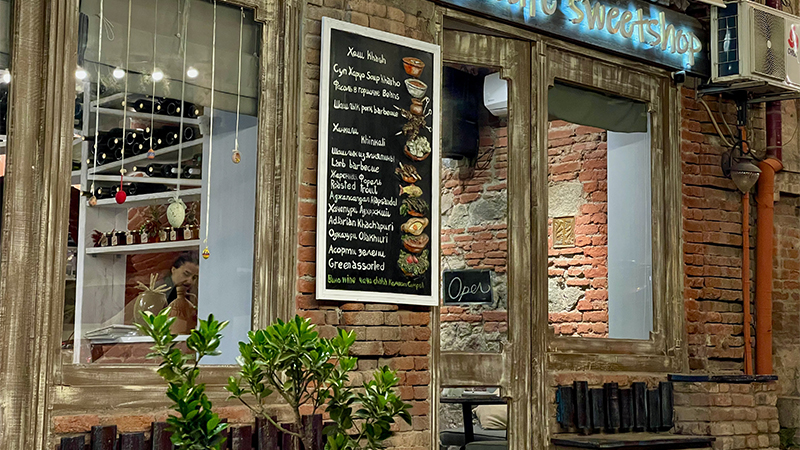 sweetshop
Хаш Khash
Суп Харчо Soup kharcho
Фасоль в горшочке Beans
Шашлык pork barbecue
Хинкали
Khinkali
Шашлык из ягнятины
Lamb barbecue
Жареная Форель
Roasted trout
Аджапсандал
Хачапури Аджарский
Adjarian Khachapuri
Оджахури Ojakhuri
Асорти зелени
Green assorted
Вино Wine
Open